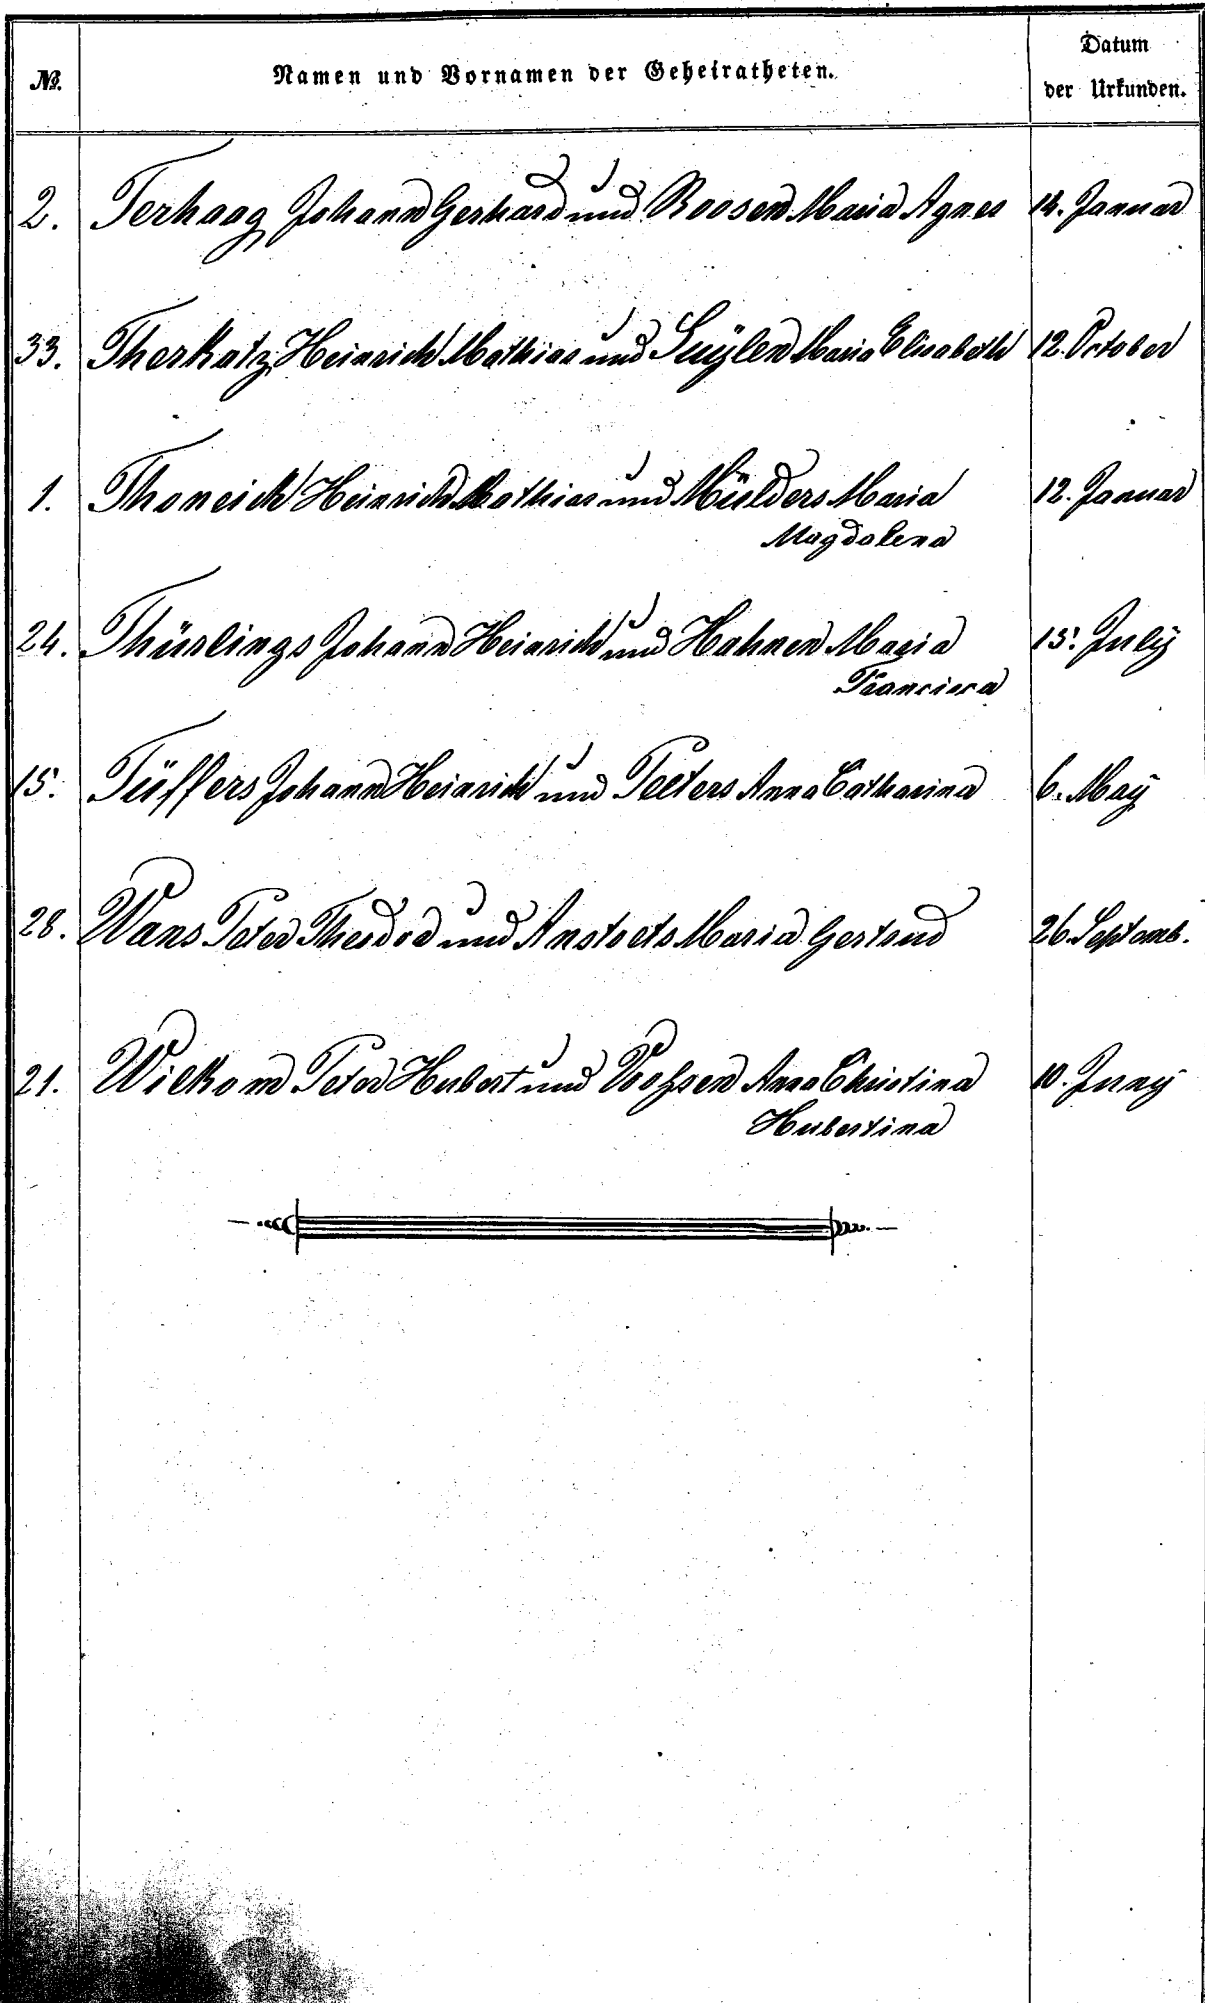 №.
Namen und Vornamen der Geheiratheten.
Datum
der Urkunden.
2. Terhaag Johann Gerhard und Roosen Maria Agnes 14. Januar
33. Therkatz Heinrich Mathias und Suÿlen Maria Elisabeth 12. October
1. Thoneick Heinrich Mathias und Mülders Maria 12. Januar
Magdalena
24. Thürlings Johann Heinrich und Hahnen Maria 15. Julÿ
Francisca
15. Tüffers Johann Heinrich und Peeters Anna Catharina 6. Maÿ
28. Wans Peter Theodor und Anstoets Maria Gertrud 26. Septemb.
21. Wilkom Peter Hubert und Vohsen Anna Christina 10. Junÿ
Hubertina